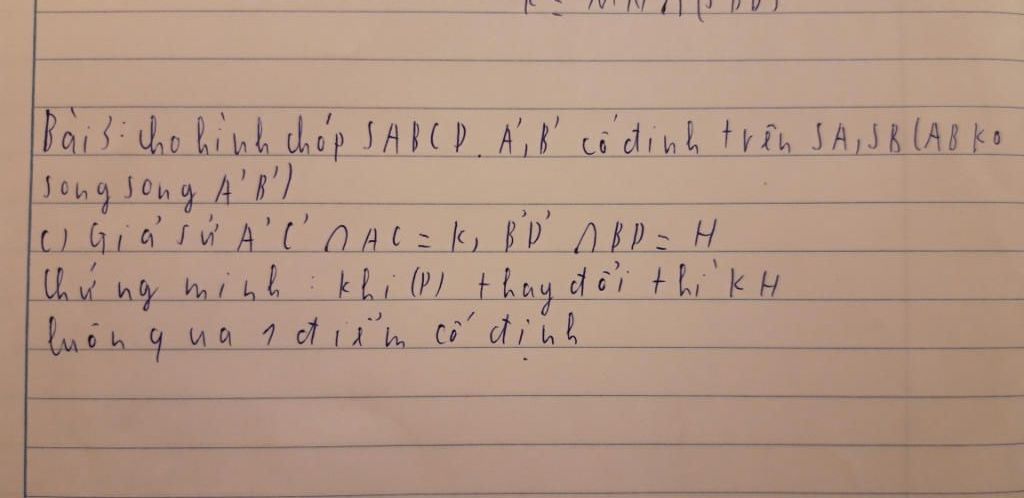 Bài 3: Cho hình chóp SABCD. A', B' cố định trên SA, SB (AB ko
song song A'B')
c) Giả sử A'C' ∩ AC = K, B'D' ∩ BD = H
Chứng minh: khi (P) thay đổi thì KH
luôn qua 1 điểm cố định